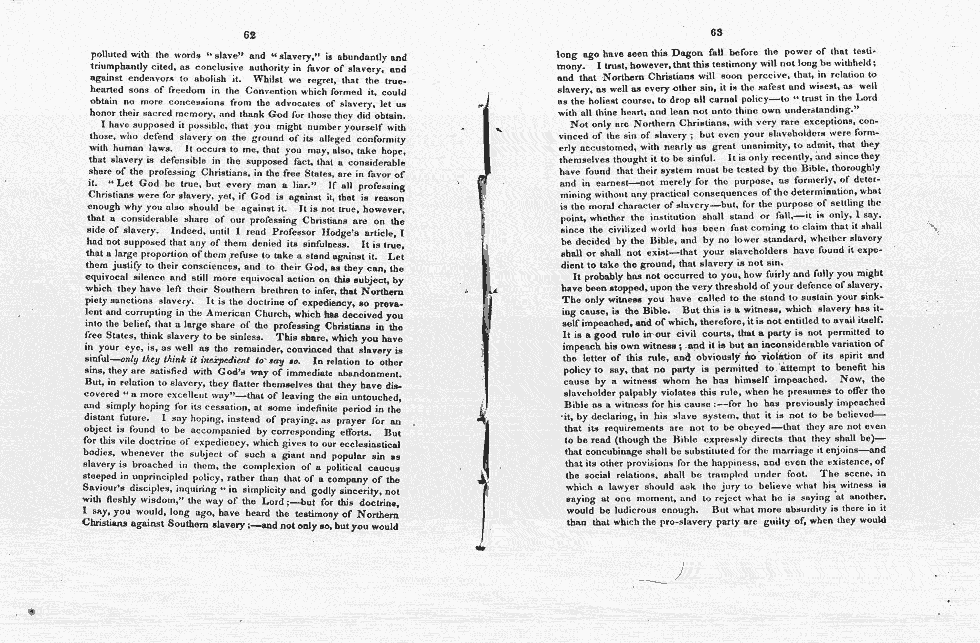 62
polluted with the words "slave" and "slavery," is abundantly and
triumphantly cited, as conclusive authority in favor of slavery, and
against endeavors to abolish it. Whilst we regret, that the true-
hearted sons of freedom in the Convention which formed it, could
obtain no more concessions from the advocates of slavery, let us
honor their sacred memory, and thank God for those they did obtain.
I have supposed it possible, that you might number yourself with
those, who defend slavery on the ground of its alleged conformity
with human laws. It occurs to me, that you may, also, take hope,
that slavery is defensible in the supposed fact, that a considerable
share of the professing Christians, in the free States, are in favor of
it. "Let God be true, but every man a liar." If all professing
Christians were for slavery, yet, if God is against it, that is reason
enough why you also should be against it. It is not true, however,
that a considerable share of our professing Christians are on the
side of slavery. Indeed, until I read Professor Hodge's article, I
had not supposed that any of them denied its sinfulness. It is true,
that a large proportion of them refuse to take a stand against it. Let
them justify to their consciences, and to their God, as they can, the
equivocal silence and still more equivocal action on this subject, by
which they have left their Southern brethren to infer, that Northern
piety sanctions slavery. It is the doctrine of expediency, so preva-
lent and corrupting in the American Church, which has deceived you
into the belief, that a large share of the professing Christians in the
free States, think slavery to be sinless. This share, which you have
in your eye, is, as well as the remainder, convinced that slavery is
sinful—only they think it inexpedient to say so. In relation to other
sins, they are satisfied with God's way of immediate abandonment.
But, in relation to slavery, they flatter themselves that they have dis-
covered "a more excellent way"—that of leaving the sin untouched,
and simply hoping for its cessation, at some indefinite period in the
distant future. I say hoping, instead of praying, as prayer for an
object is found to be accompanied by corresponding efforts. But
for this vile doctrine of expediency, which gives to our ecclesiastical
bodies, whenever the subject of such a giant and popular sin as
slavery is broached in them, the complexion of a political caucus
steeped in unprincipled policy, rather than that of a company of the
Saviour's disciples, inquiring "in simplicity and godly sincerity, not
with fleshly wisdom," the way of the Lord;—but for this doctrine,
I say, you would, long ago, have heard the testimony of Northern
Christians against Southern slavery;—and not only so, but you would
63
long ago have seen this Dagon fall before the power of that testi-
mony. I trust, however, that this testimony will not long be withheld;
and that Northern Christians will soon perceive, that, in relation to
slavery, as well as every other sin, it is the safest and wisest, as well
as the holiest course, to drop all carnal policy—to "trust in the Lord
with all thine heart, and lean not unto thine own understanding."
Not only are Northern Christians, with very rare exceptions, con-
vinced of the sin of slavery; but even your slaveholders were form-
erly accustomed, with nearly as great unanimity, to admit, that they
themselves thought it to be sinful. It is only recently, and since they
have found that their system must be tested by the Bible, thoroughly
and in earnest—not merely for the purpose, as formerly, of deter-
mining without any practical consequences of the determination, what
is the moral character of slavery—but, for the purpose of settling the
point, whether the institution shall stand or fall,—it is only, I say,
since the civilized world has been fast coming to claim that it shall
be decided by the Bible, and by no lower standard, whether slavery
shall or shall not exist—that your slaveholders have found it expe-
dient to take the ground, that slavery is not sin.
It probably has not occurred to you, how fairly and fully you might
have been stopped, upon the very threshold of your defence of slavery.
The only witness you have called to the stand to sustain your sink-
ing cause, is the Bible. But this is a witness, which slavery has it-
self impeached, and of which, therefore, it is not entitled to avail itself.
It is a good rule in our civil courts, that a party is not permitted to
impeach his own witness; and it is but an inconsiderable variation of
the letter of this rule, and obviously no violation of its spirit and
policy to say, that no party is permitted to attempt to benefit his
cause by a witness whom he has himself impeached. Now, the
slaveholder palpably violates this rule, when he presumes to offer the
Bible as a witness for his cause:—for he has previously impeached
it, by declaring, in his slave system, that it is not to be believed—
that its requirements are not to be obeyed—that they are not even
to be read (though the Bible expressly directs that they shall be)—
that concubinage shall be substituted for the marriage it enjoins—and
that its other provisions for the happiness, and even the existence, of
the social relations, shall be trampled under foot. The scene, in
which a lawyer should ask the jury to believe what his witness is
saying at one moment, and to reject what he is saying at another,
would be ludicrous enough. But what more absurdity is there in it
than that which the pro-slavery party are guilty of, when they would